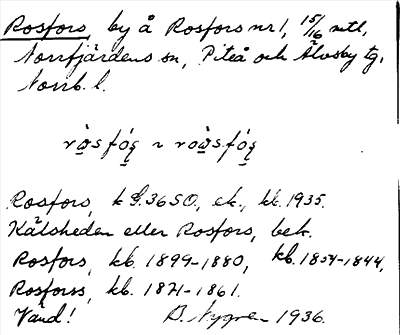 Rosfors, by å Rosfors nr 1, 15/16 mtl,
Norrfjärdens sn, Piteå och Älvsby tg,
Norrb. l.
Rosfors, k 9.3650, ek., kk. 1935.
Kälsheden eller Rosfors, bek.
Rosfors, kb. 1899-1880, kb. 1854-1844,
Rosforss, kb. 1871-1861.
Vänd! B. Nygren 1936.